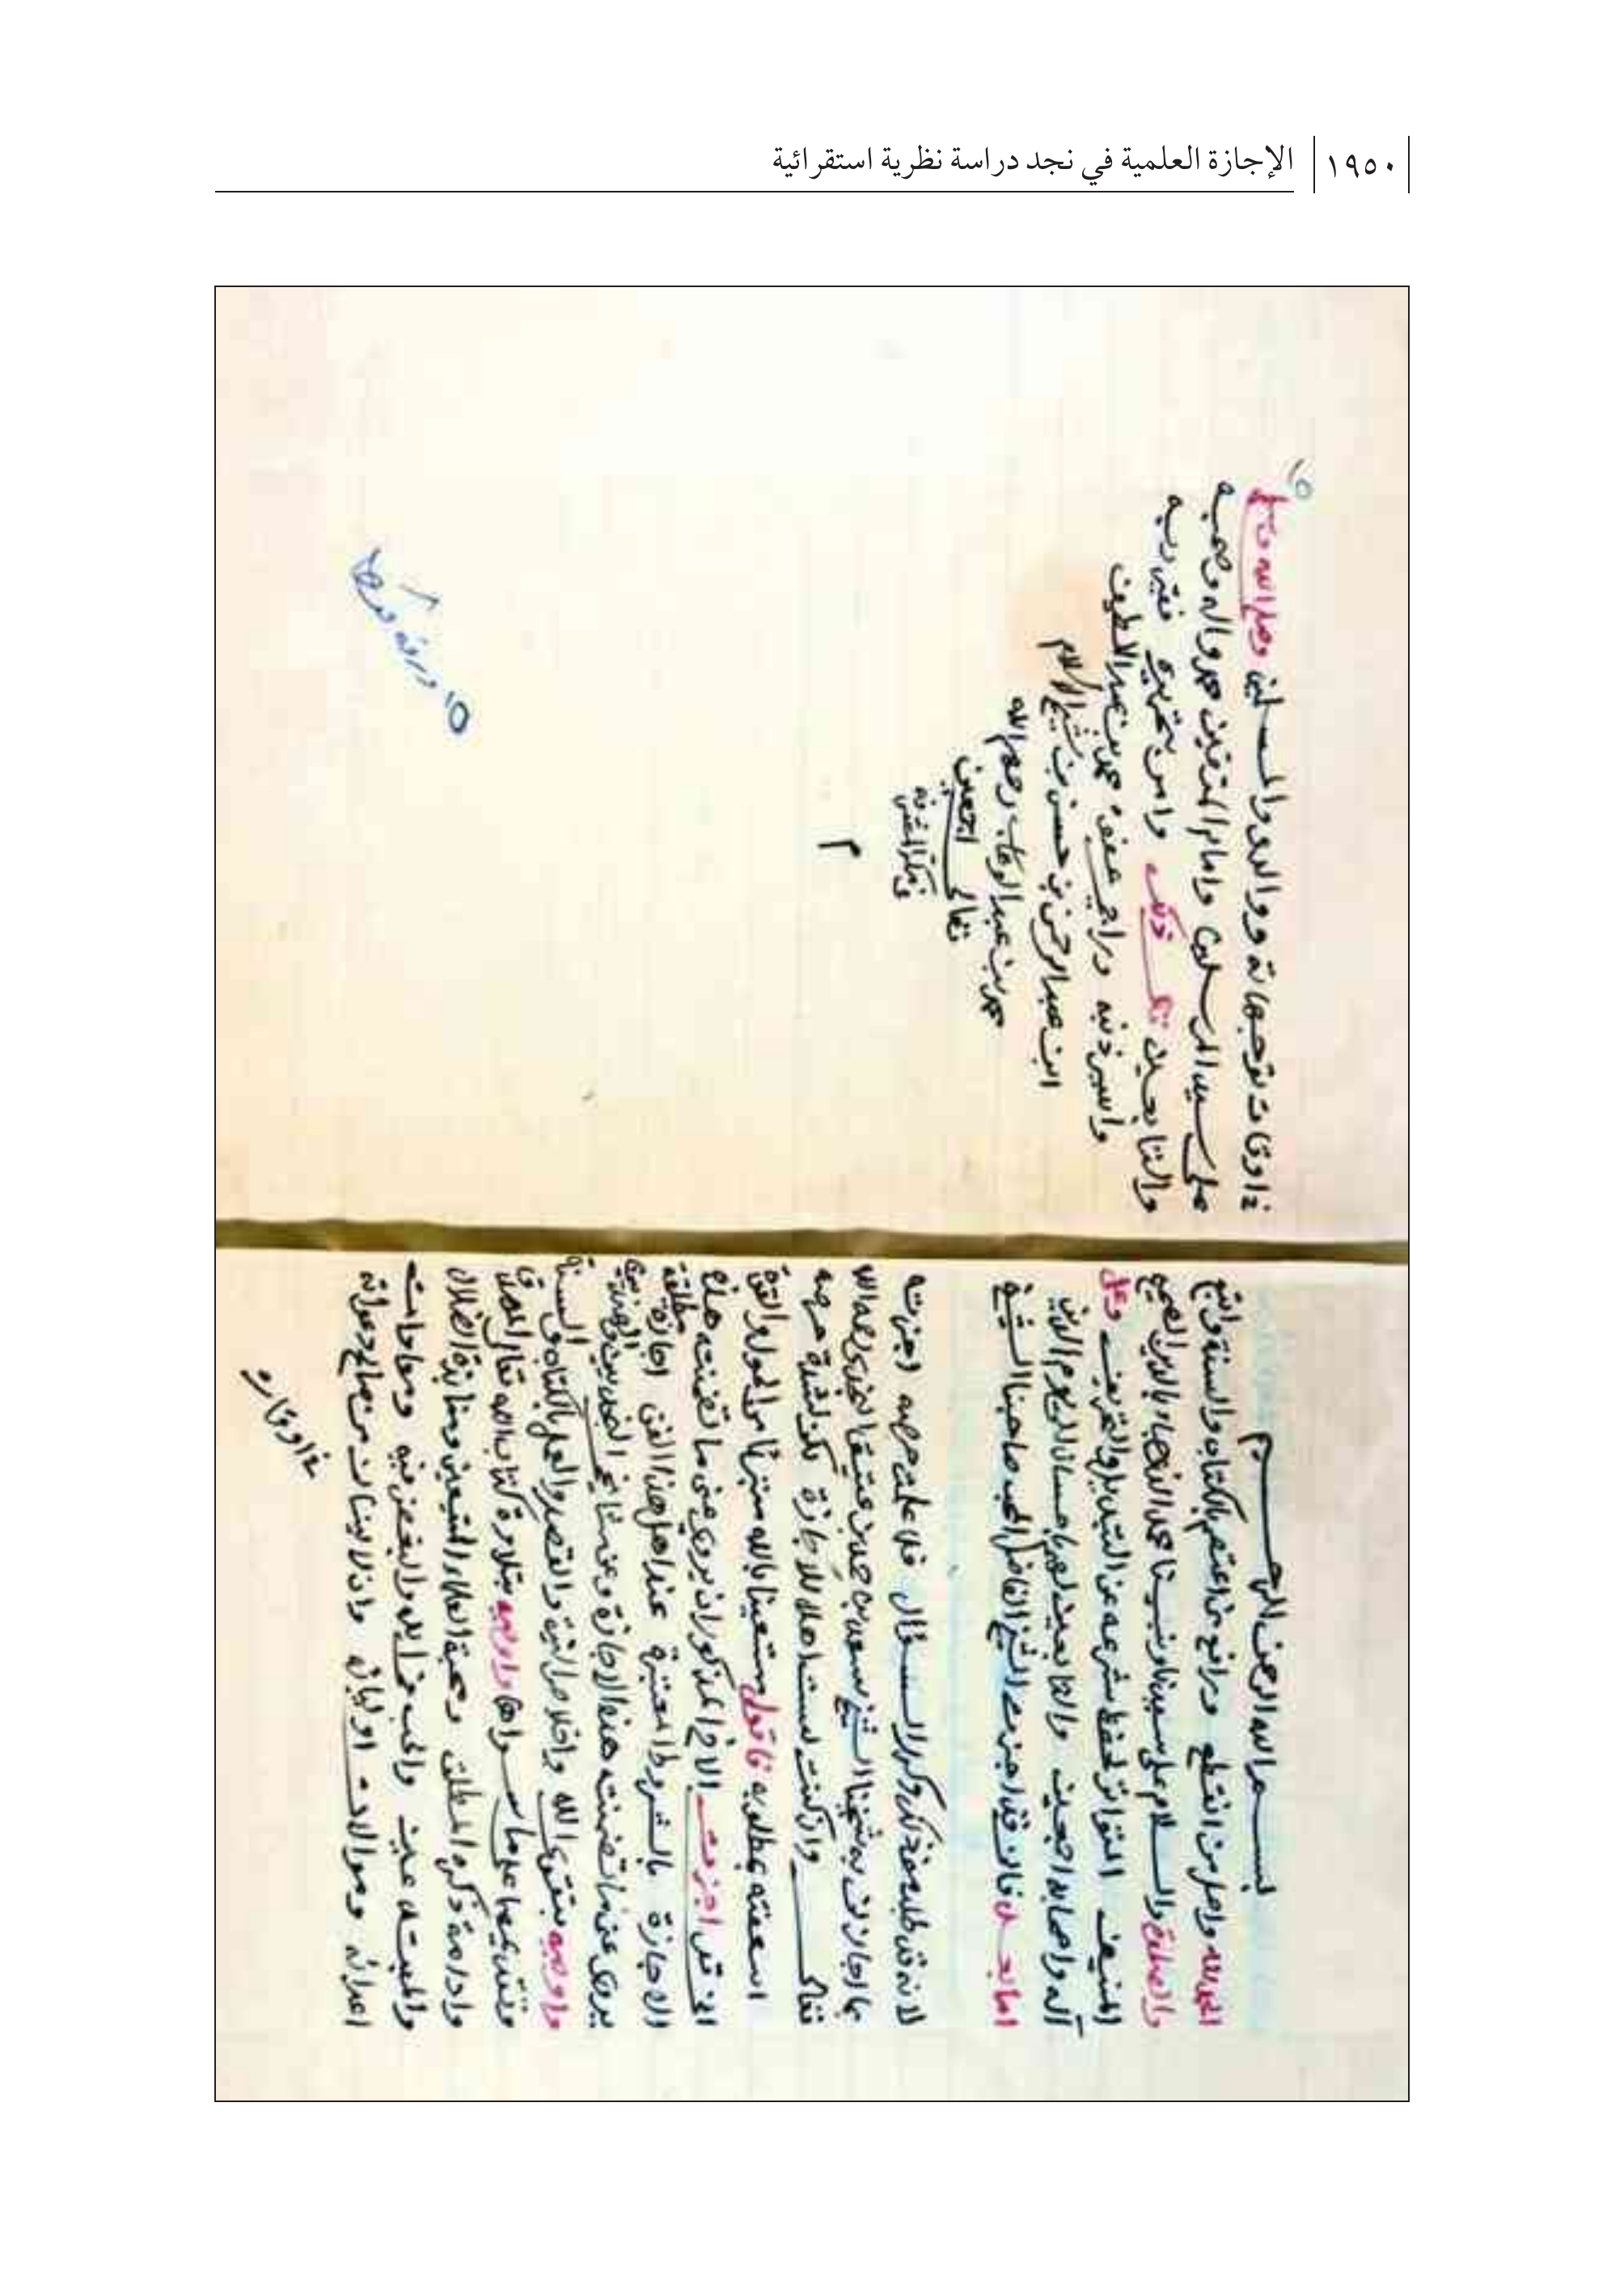 ١٩٥٠
الإجازة العلمية في نجد دراسة نظرية استقرائية
بسم الله الرحمن الرحيم
الحمد لله واصل من انقطع ورافع من اعتصم بالكتاب والسنة واتبع
والصلاة والسلام على سيدنا ونبينا محمد بالدين الصحيح
المنيف المتواتر لحفظ شرعه عن التبديل والتحريف وعلى
آله واصحابه اجمعين والتابعين لهم باحسان الى يوم الدين
اما بعد فان الشيخ الفاضل المحب صاحبنا الشيخ
لانه قد طلب وكرر السؤال فلما علمت حرصه اجزته
بما اجازني به شيخنا الشيخ سعد بن حمد بن عتيق النجدي رحمه الله
تعالى وان كنت لست اهلا للاجازة لكن لشدة حرصه
اسعفته بمطلوبه فاقول مستعينا بالله متبرئا من الحول والقوة
اني قد اجزت الاخ المذكور ان يروي عني ما تضمنته هذه
الاجازة بالشروط المعتبرة عند اهل هذا الفن اجازة مطلقة
يروي عني ما تضمنته هذه الاجازة وعن مشايخي النجديين والهنديين
واوصيه بتقوى الله واخلاص النية والقصد والعمل بالكتاب والسنة
وتقديمهما على ما سواهما واوصيه بتلاوة كتاب الله
وادامة ذكره المطلق ومحبة العلماء المتبعين
والحب في الله والبغض فيه
اعدائه وموالاة اوليائه وان لا ينسان من صالح دعواته
في اوقات
في اوقات توجهاته ووالدي والمسلمين وصلى الله وسلم
على سيد المرسلين وامام المتقين محمد واله وصحبه
والتابعين ذلك وامر بتحريره فقير ربه
واسير ذنبه وراجي عفوه محمد بن عبد اللطيف
ابن عبد الرحمن بن حسن بن شيخ الاسلام
محمد بن عبد الوهاب رحمهم الله
تعالى اجمعين
في مكة المشرفة
م
١٥
١٥ ورقة فقط